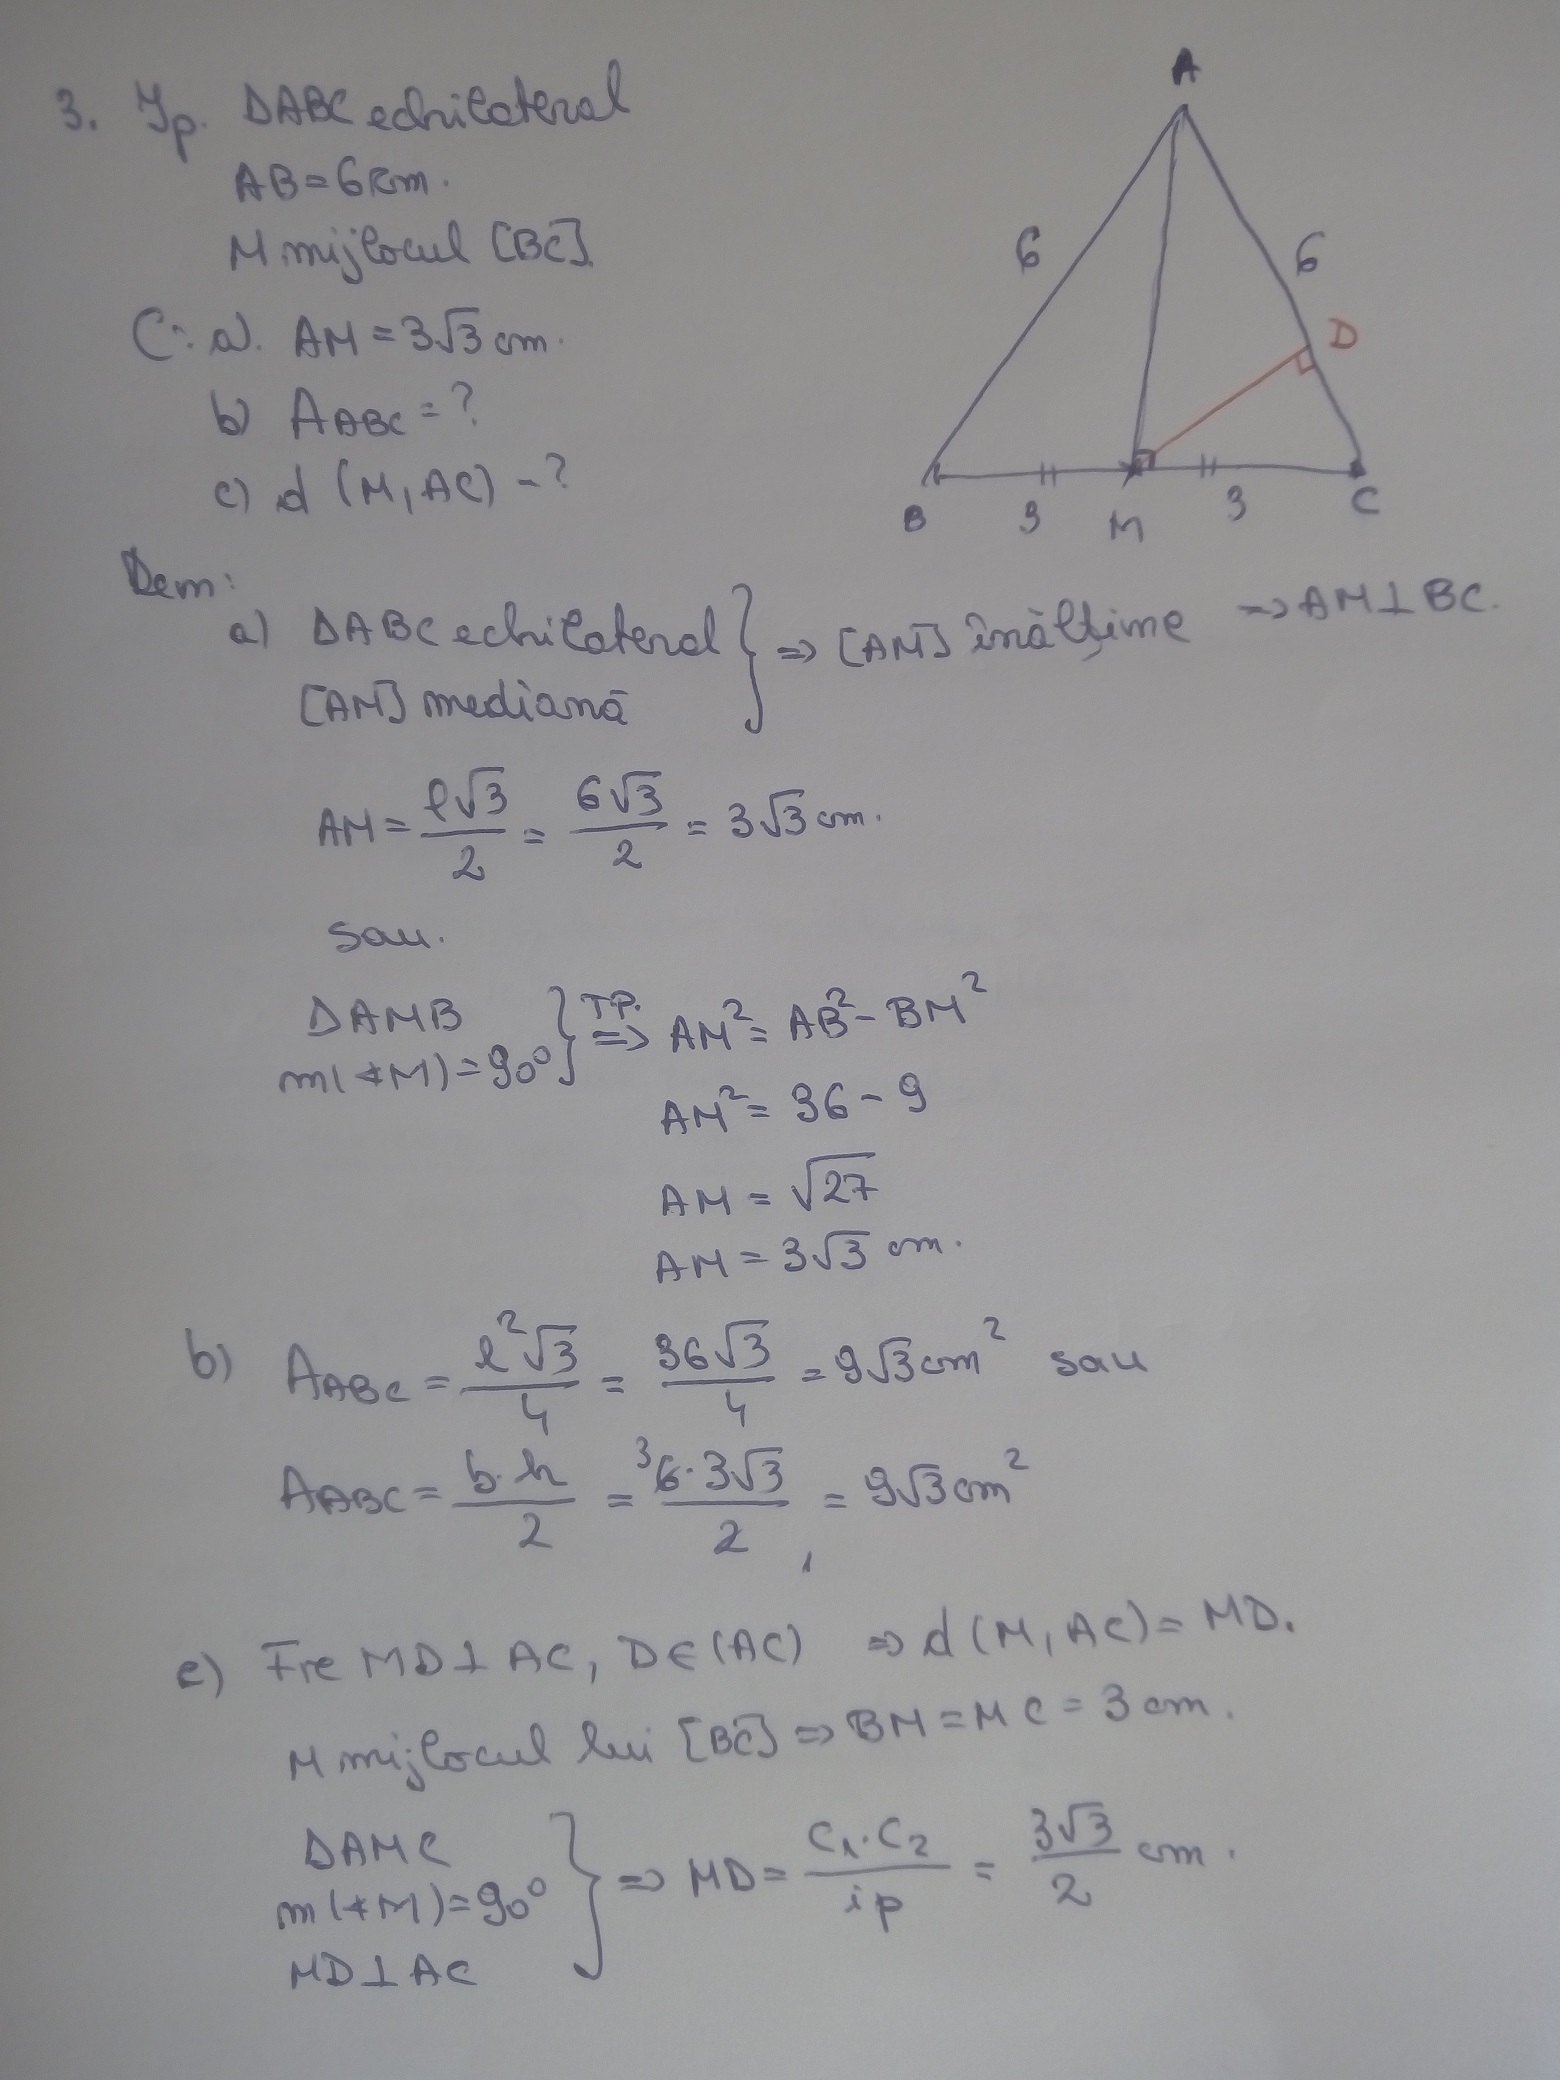 3. Ip. ΔABC echilateral
AB=6cm.
M mijlocul [BC]
C: a). AM = 3√3 cm.
b) A ABC = ?
c) d (M, AC) - ?
A
6
6
D
B
3
M
3
C
Dem:
a) ΔABC echilateral } => [AM] înălțime => AM⊥BC.
[AM] mediană
AM = l√3/2 = 6√3/2 = 3√3 cm.
sau.
ΔAMB
m(∢M)=90° } T.P. => AM² = AB² - BM²
AM² = 36 - 9
AM = √27
AM = 3√3 cm.
b) A ABC = l²√3/4 = 36√3/4 = 9√3 cm² sau
A ABC = b·h/2 = ³6·3√3/2 1 = 9√3 cm²
c) Fie MD⊥AC, D∈(AC) => d(M, AC) = MD.
M mijlocul lui [BC] => BM = MC = 3 cm.
ΔAMC
m(∢M)=90° } => MD = c₁·c₂/ip = 3√3/2 cm.
MD⊥AC